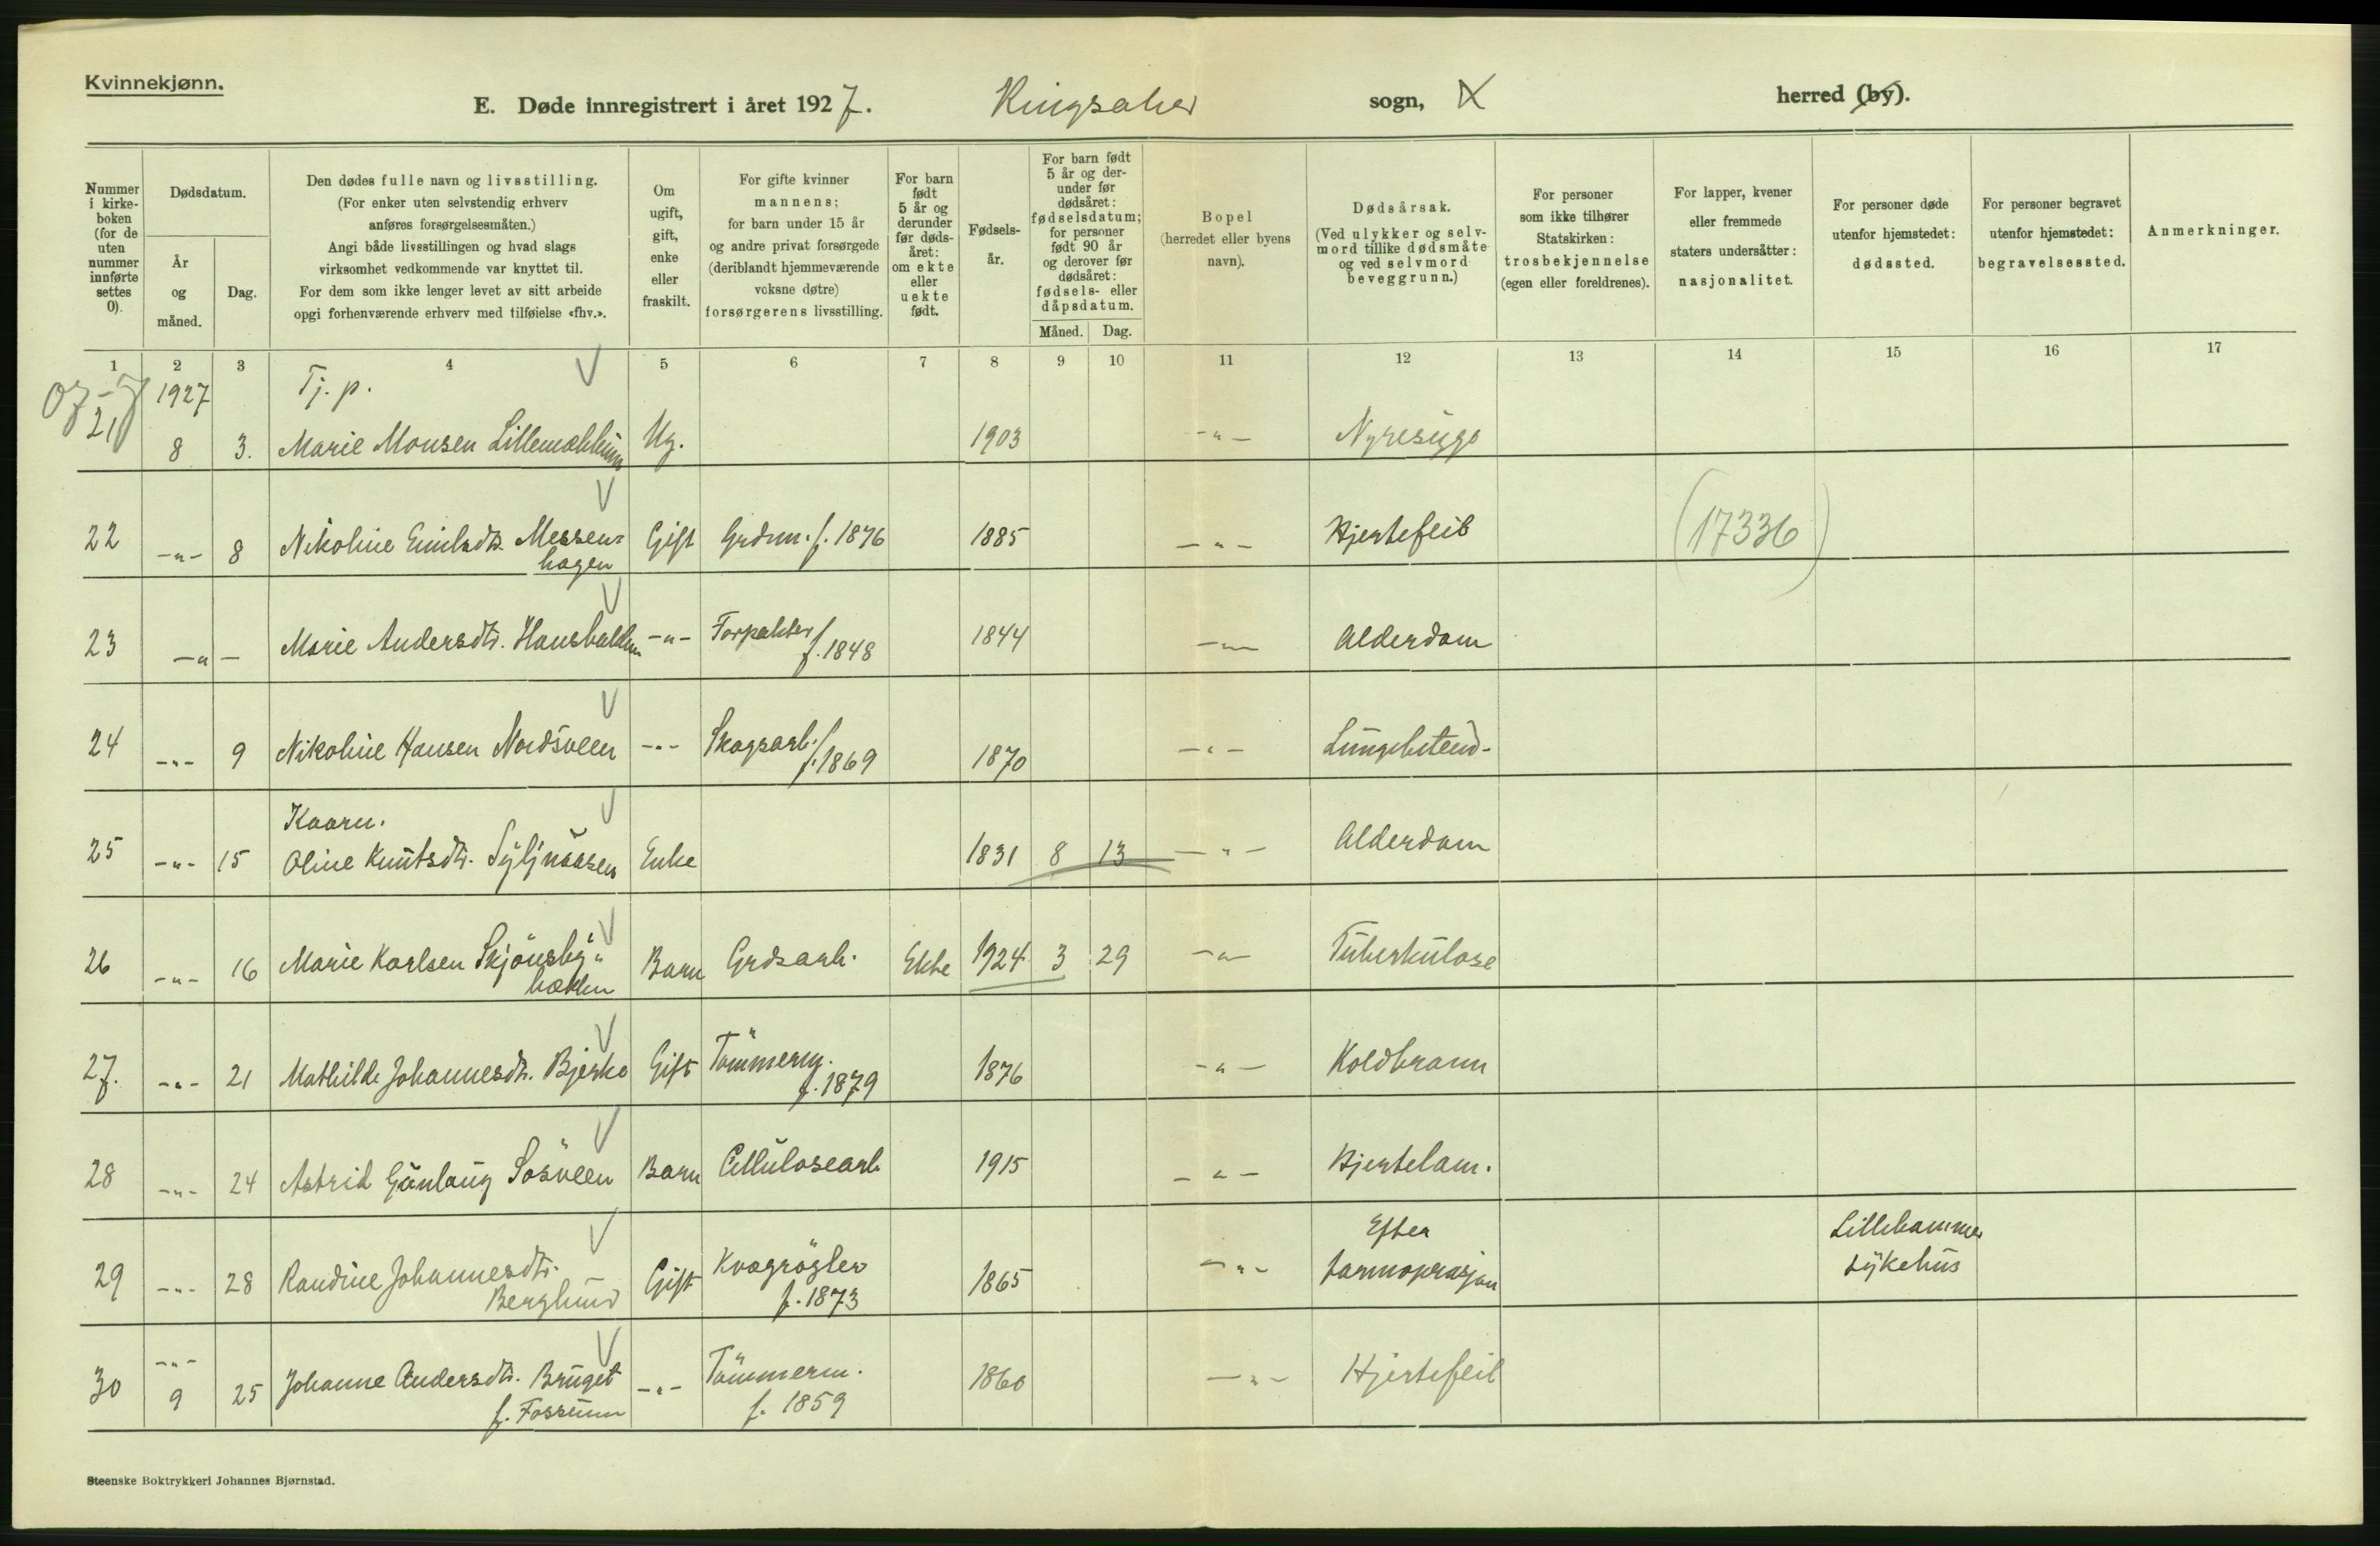 Kvinnekjønn.
E. Døde innregistrert i året 1927. Ringsaker sogn, herred (by).
Nummer i kirkeboken (for de uten nummer innførte settes 0).
Dødsdatum.
År og måned.
Dag.
Den dødes fulle navn og livsstilling.
(For enker uten selvstendig erhverv
anføres forsørgelsesmåten.)
Angi både livsstillingen og hvad slags
virksomhet vedkommende var knyttet til.
For dem som ikke lenger levet av sitt arbeide
opgi forhenværende erhverv med tilføielse «fhv.».
Om ugift, gift, enke eller fraskilt.
For gifte kvinner
mannens;
for barn under 15 år
og andre privat forsørgede
(deriblandt hjemmeværende
voksne døtre)
forsørgerens livsstilling.
For barn født 5 år og derunder før dødsåret: om ekte eller uekte født.
Fødselsår.
For barn født 5 år og derunder før dødsåret: fødselsdatum; for personer født 90 år og derover før dødsåret: fødsels- eller dåpsdatum.
Måned. Dag.
Bopel
(herredet eller byens
navn).
Dødsårsak.
(Ved ulykker og selvmord tillike dødsmåte
og ved selvmord
beveggrunn.)
For personer
som ikke tilhører
Statskirken:
trosbekjennelse
(egen eller foreldrenes).
For lapper, kvener
eller fremmede
staters undersåtter:
nasjonalitet.
For personer døde
utenfor hjemstedet:
dødssted.
For personer begravet
utenfor hjemstedet:
begravelsessted.
Anmerkninger.
1 2 3 4 5 6 7 8 9 10 11 12 13 14 15 16 17
1927 Tj. p.
21 8 3. Marie Monsen Ug. 1903 -"- Nyresyge
22 -"- 8 Nikoline Emilsdtr. Messen= Gift Grdm. f. 1876 1885 -"- Hjertefeil (17336)
hagen
23 -"- Marie Andersdtr. -"- Forpakter 1844 -"- Alderdom
f. 1848
24 -"- 9 Nikoline Hansen Nordsveen -"- Skogsarb. 1870 -"- Lungebetend-
f. 1869
Kaarn.
25 -"- 15 Oline Knutsdtr. Enke 1831 8 13 -"- Alderdom
26 -"- 16 Marie Karlsen Skjönsby= Barn Grdsarb. Ekte 1924 3 29 -"- Tuberkulose
bakken
27. -"- 21 Mathilde Johannesdtr. Bjerke Gift Tömmerm. 1876 -"- Koldbrann
f. 1879
28 -"- 24 Astrid Gunlaug Sösveen Barn Cellulosearb 1915 -"- Hjertelam.
29 -"- 28 Randine Johannesdtr. Gift Kvægrögter 1865 -"- Efter Lillehammer
Berglund f. 1873 tarmoprasjon sykehus
-"-
30 9 25 Johanne Andersdtr. Bruget -"- Tömmerm. 1860 -"- Hjertefeil
f. Fossum f. 1859
Steenske Boktrykkeri Johannes Bjørnstad.